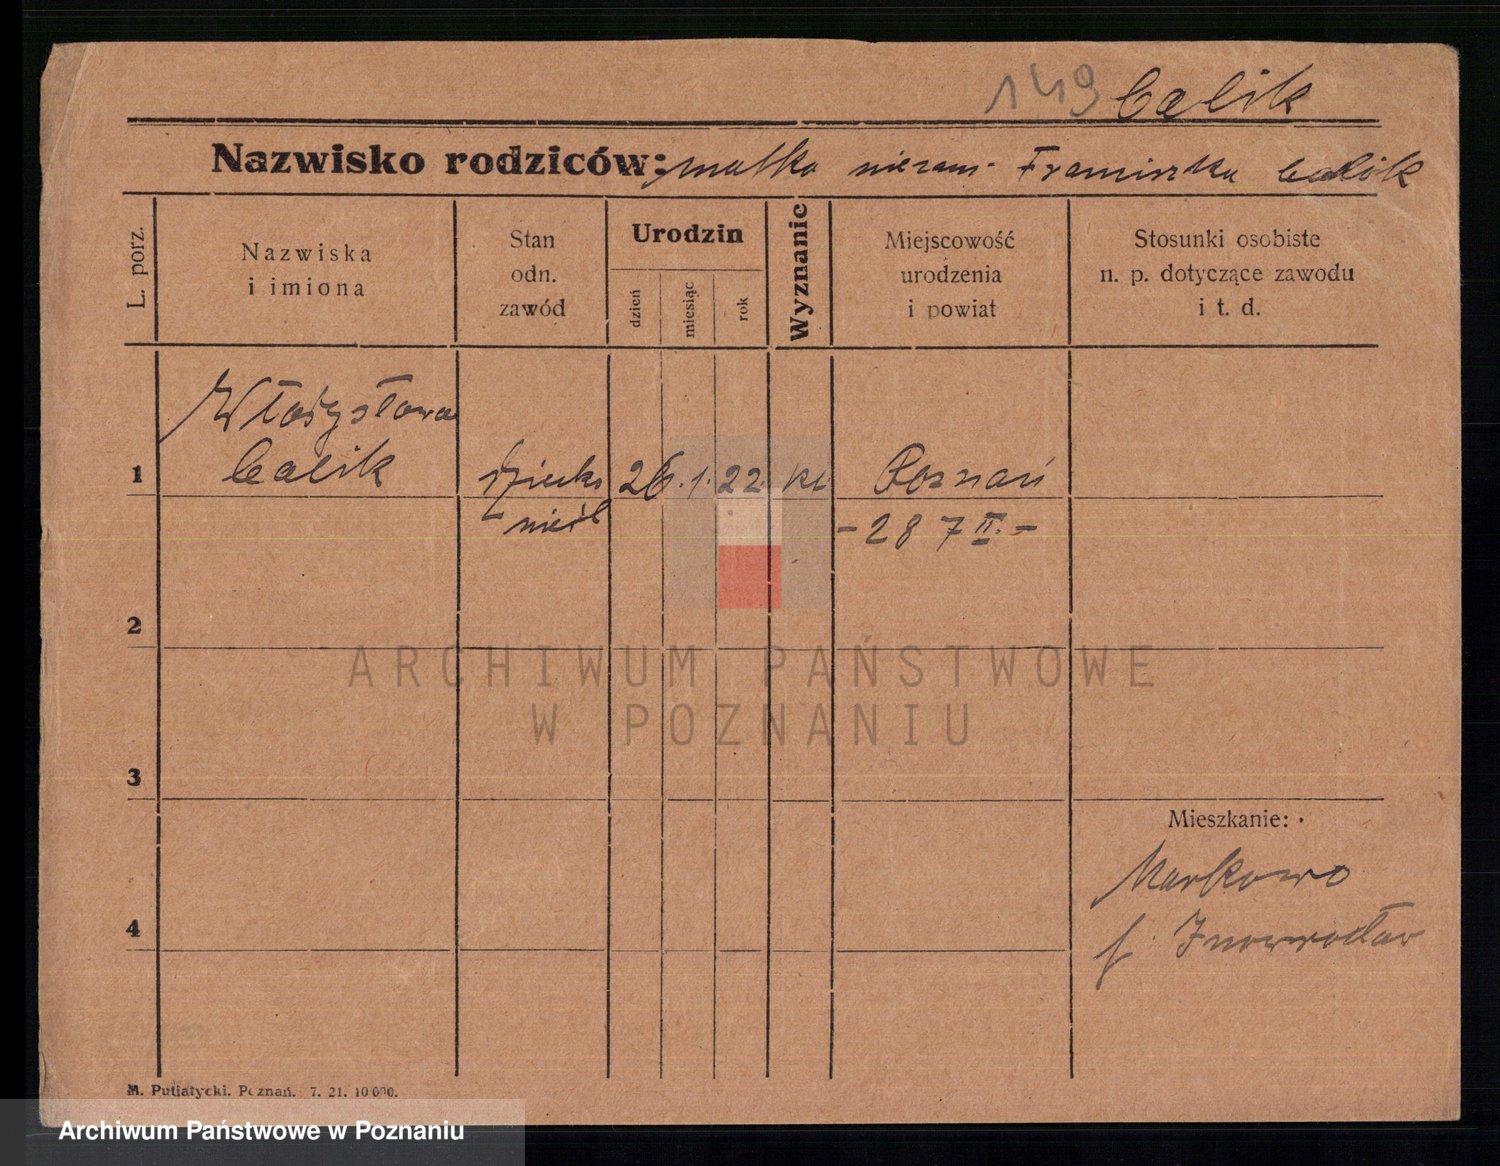 149 Calik
Nazwisko rodziców: matka niezam. Franciszka Calik
L. porz.
Nazwiska
i imiona
Stan
odn.
zawód
Urodzin
dzień
miesiąc
rok
Wyznanie
Miejscowość
urodzenia
i powiat
Stosunki osobiste
n. p. dotyczące zawodu
i t. d.
Władysława
1 Calik dziecko 26. 1. 22. kt. Poznań
nieśl - 287 II. -
2
3
Mieszkanie:
Markowo
4 p. Inowrocław
ARCHIWUM PAŃSTWOWE
W POZNANIU
M. Putiatycki. Poznań. 7. 21. 10000.
Archiwum Państwowe w Poznaniu